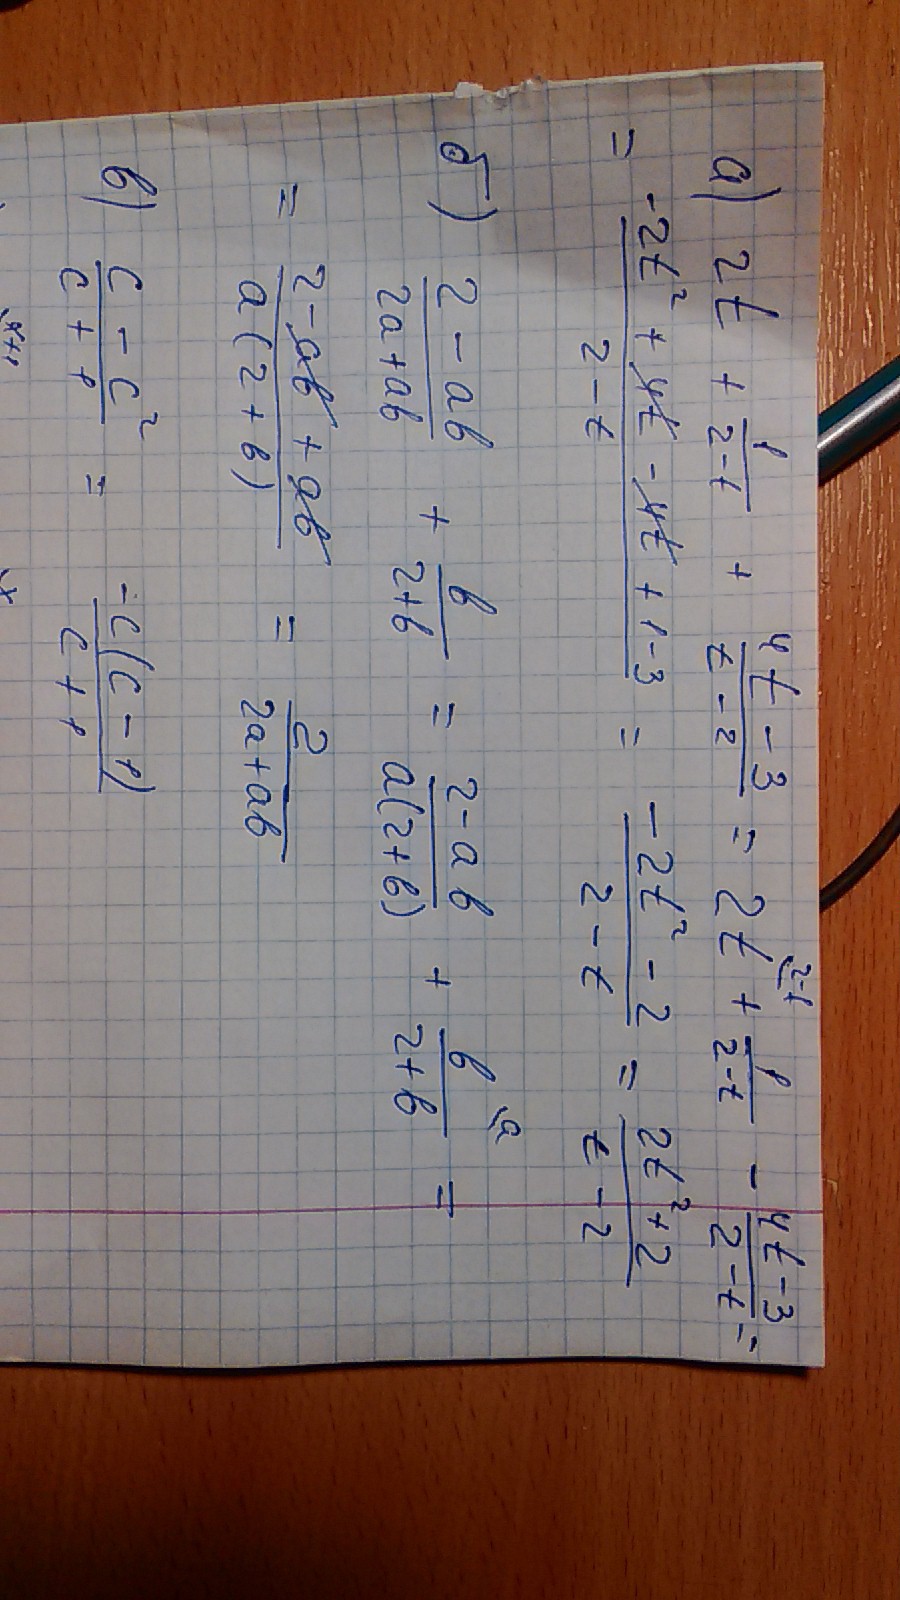 а) 2t + 1/(2-t) + (4t-3)/(t-2) = 2t^(2-t) + 1/(2-t) - (4t-3)/(2-t) =
= (-2t² + 4t - 4t + 1-3)/(2-t) = (-2t² - 2)/(2-t) = (2t²+2)/(t-2)
б) (2-ab)/(2a+ab) + b/(2+b) = (2-ab)/(a(2+b)) + b^(a)/(2+b) =
= (2-ab+ab)/(a(2+b)) = 2/(2a+ab)
в) (c-c²)/(c+1) = (-c(c-1))/(c+1)